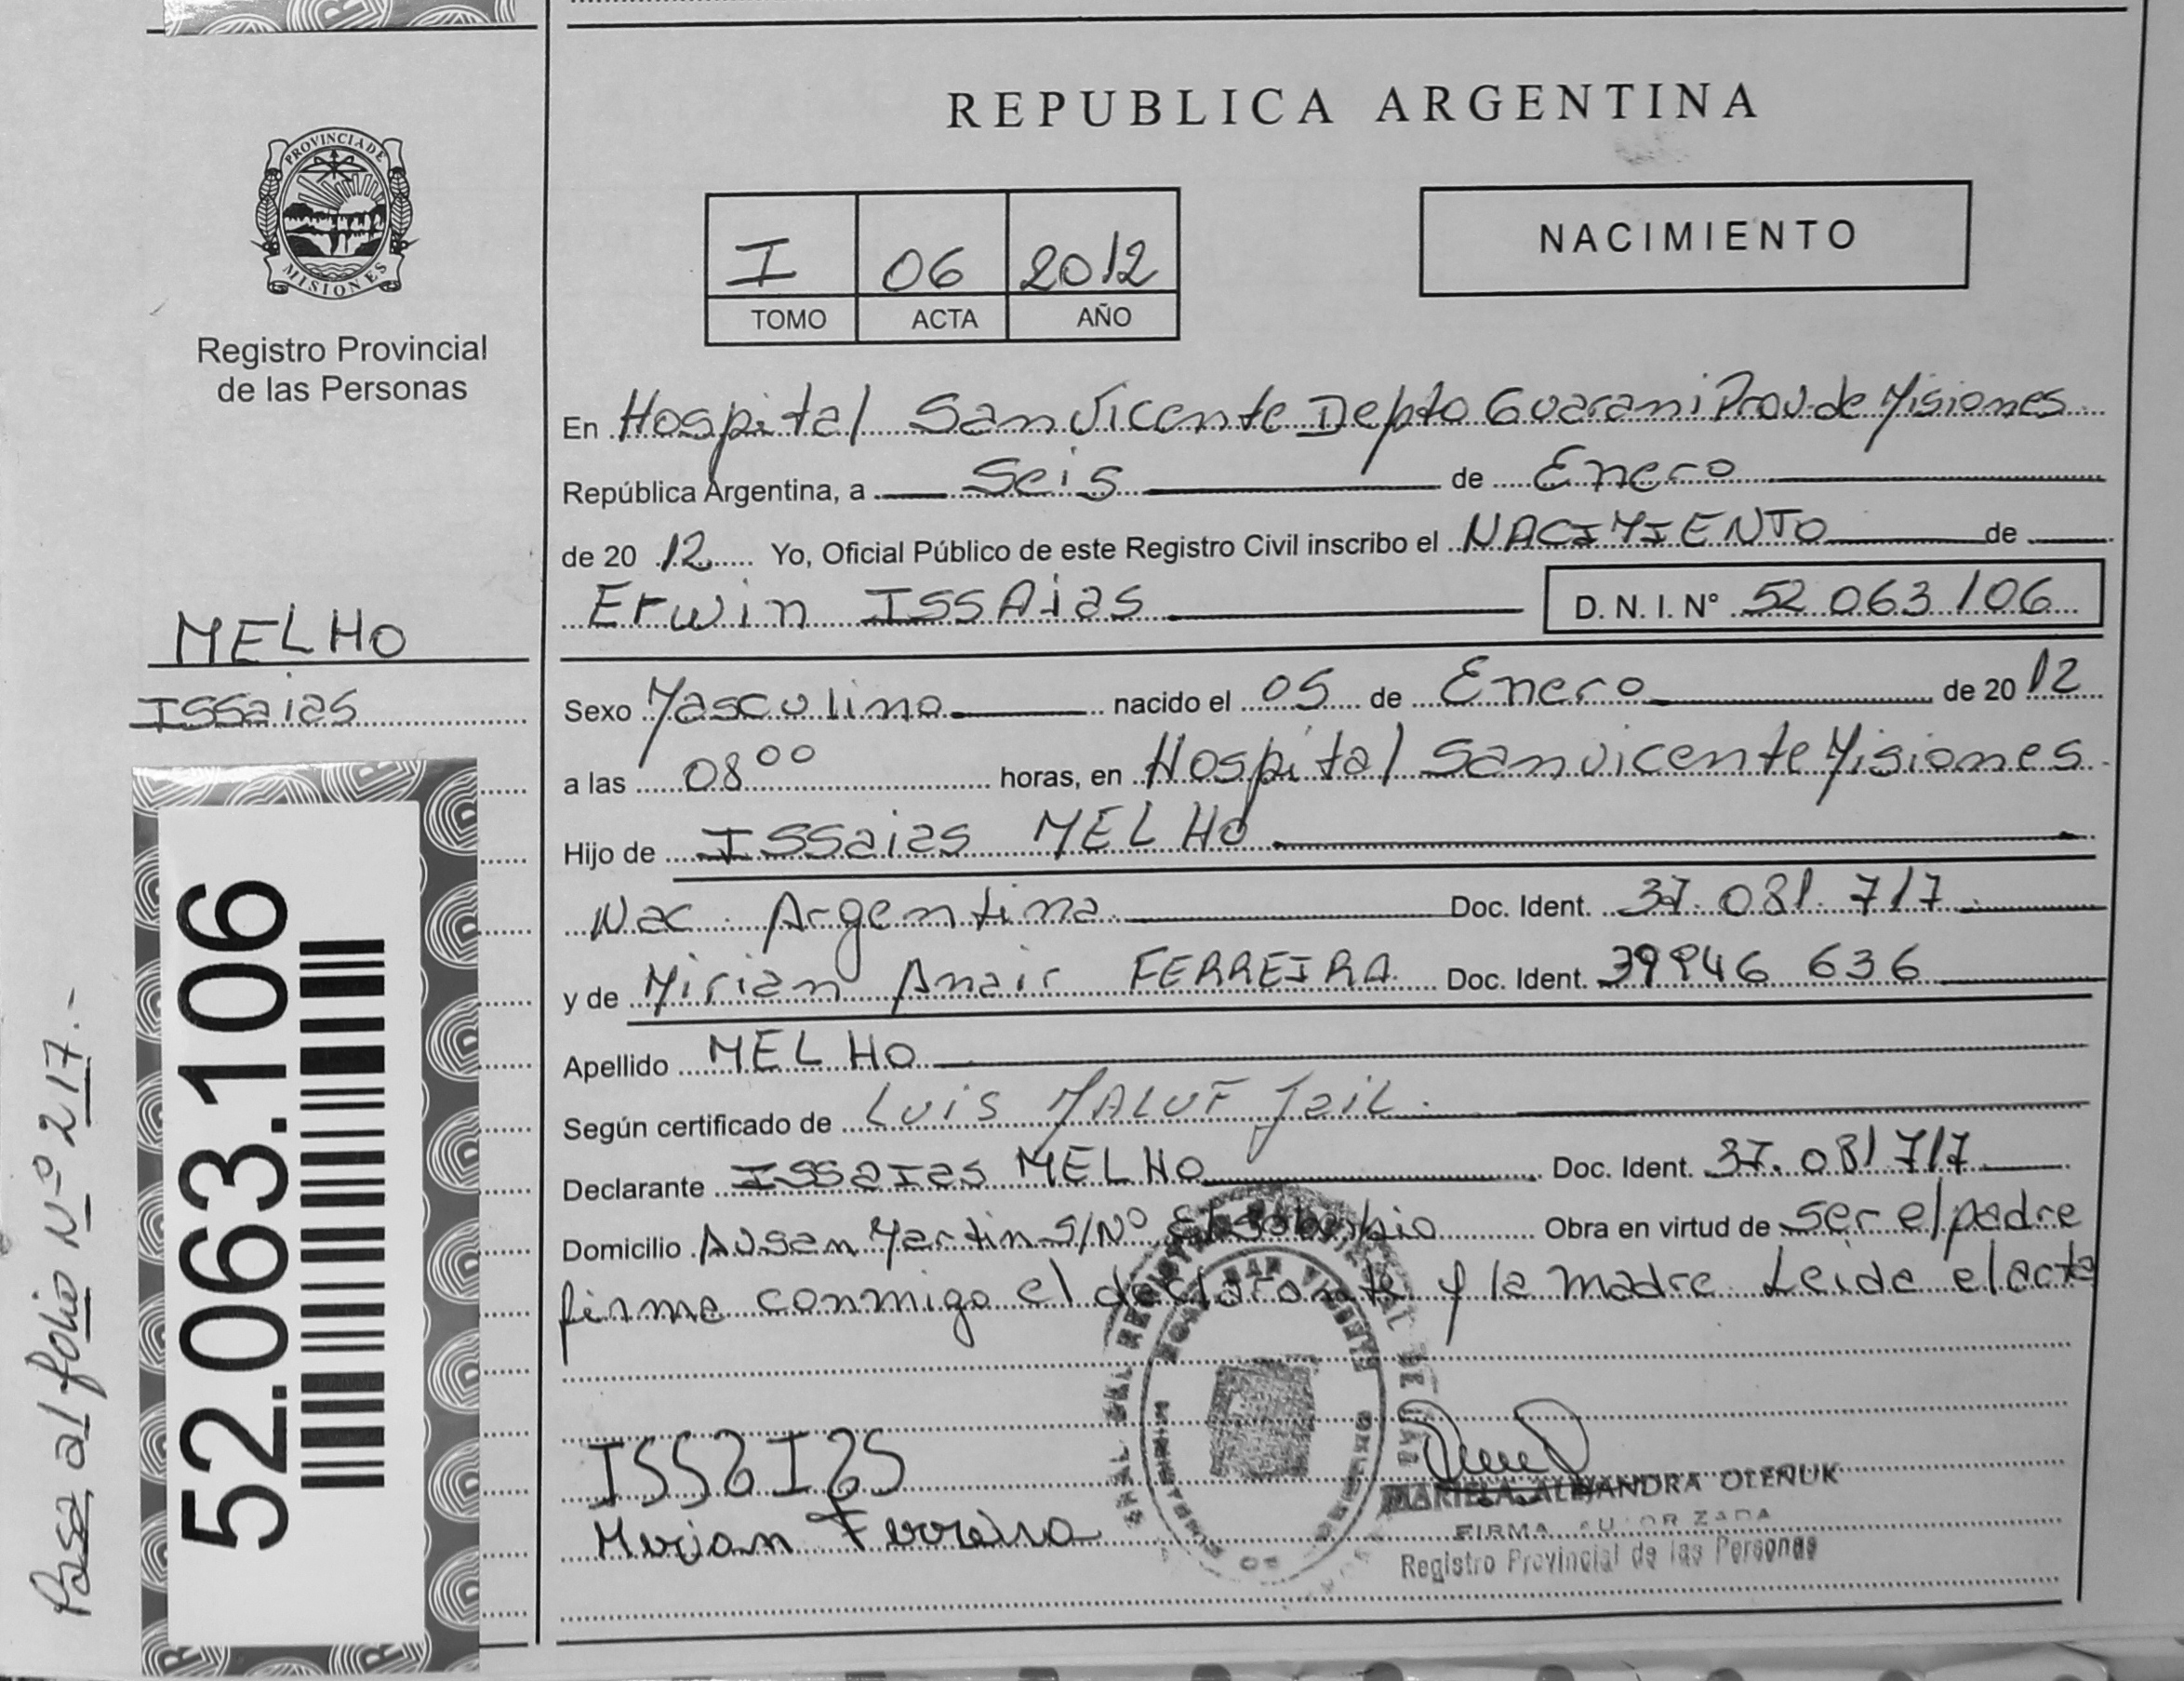 REPUBLICA ARGENTINA
PROVINCIA DE
MISIONES
Registro Provincial
de las Personas
I 06 2012
TOMO ACTA AÑO
NACIMIENTO
En Hospital San Vicente Depto Guarani Prov. de Misiones
República Argentina, a Seis de Enero
de 20 12 Yo, Oficial Público de este Registro Civil inscribo el NACIMIENTO de
Erwin ISSAias D. N. I. Nº 52 063 106
MELHO
Issaias
Sexo Masculino nacido el 05 de Enero de 20 12
a las 08 00 horas, en Hospital San vicente Misiones
Hijo de Issaias MELHO
Nac. Argentina Doc. Ident. 37. 081. 717
y de Mirian Anair FERREIRA Doc. Ident. 39946 636
Apellido MELHO
Según certificado de Luis MALUF
Declarante Issaias MELHO Doc. Ident. 37. 081 717
Domicilio Av San Martin S/Nº Obra en virtud de ser el padre
firma conmigo el declarante y la madre Leida el acta
ISSaIaS
Mirian Ferreira
MARIELA ALEJANDRA OLENUK
FIRMA AUTORIZADA
Registro Provincial de las Personas
52.063.106
Pasa al folio Nº 217.-